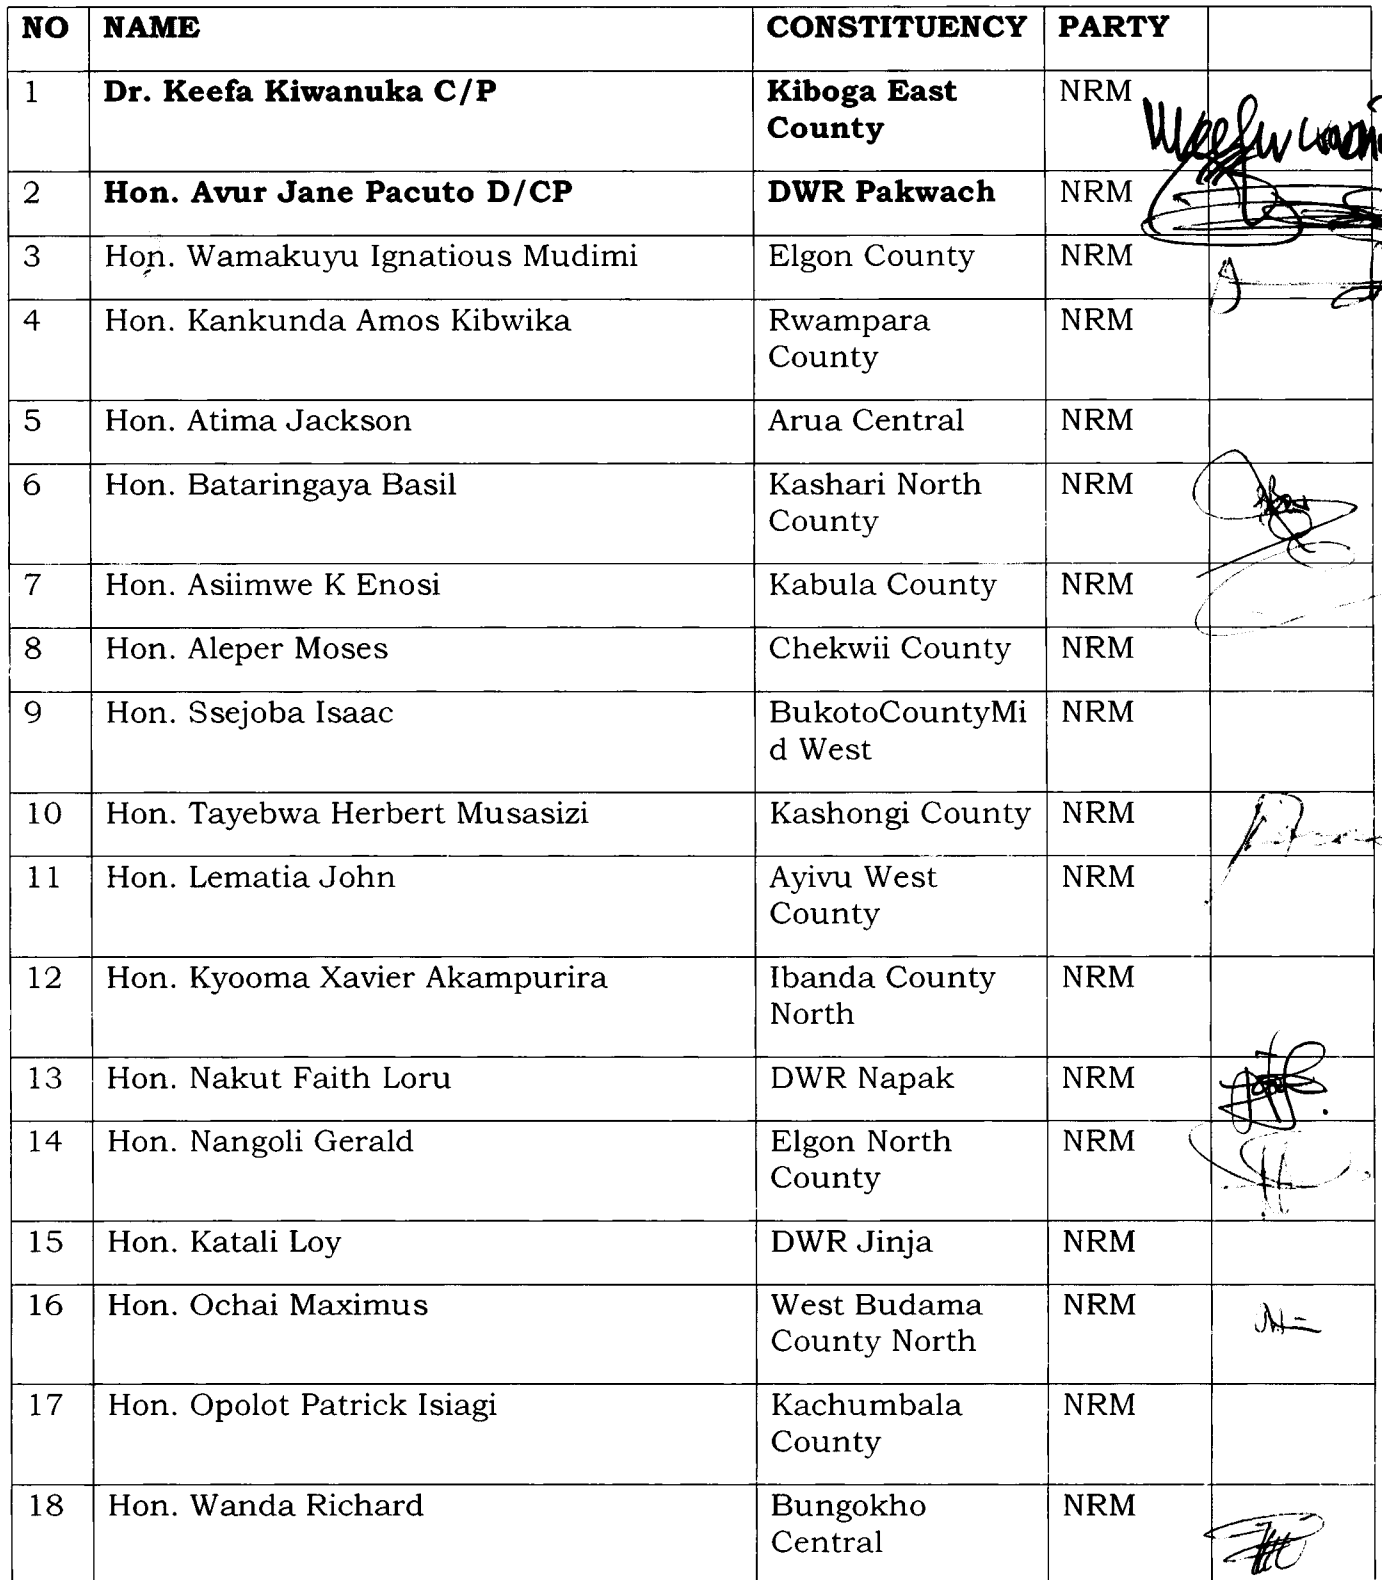 NO NAME CONSTITUENCY PARTY
1 Dr. Keefa Kiwanuka C/P Kiboga East NRM
County
2 Hon. Avur Jane Pacuto D/CP DWR Pakwach NRM
3 Hon. Wamakuyu Ignatious Mudimi Elgon County NRM
4 Hon. Kankunda Amos Kibwika Rwampara NRM
County
5 Hon. Atima Jackson Arua Central NRM
6 Hon. Bataringaya Basil Kashari North NRM
County
7 Hon. Asiimwe K Enosi Kabula County NRM
8 Hon. Aleper Moses Chekwii County NRM
9 Hon. Ssejoba Isaac BukotoCountyMi NRM
d West
10 Hon. Tayebwa Herbert Musasizi Kashongi County NRM
11 Hon. Lematia John Ayivu West NRM
County
12 Hon. Kyooma Xavier Akampurira Ibanda County NRM
North
13 Hon. Nakut Faith Loru DWR Napak NRM
14 Hon. Nangoli Gerald Elgon North NRM
County
15 Hon. Katali Loy DWR Jinja NRM
16 Hon. Ochai Maximus West Budama NRM
County North
17 Hon. Opolot Patrick Isiagi Kachumbala NRM
County
18 Hon. Wanda Richard Bungokho NRM
Central